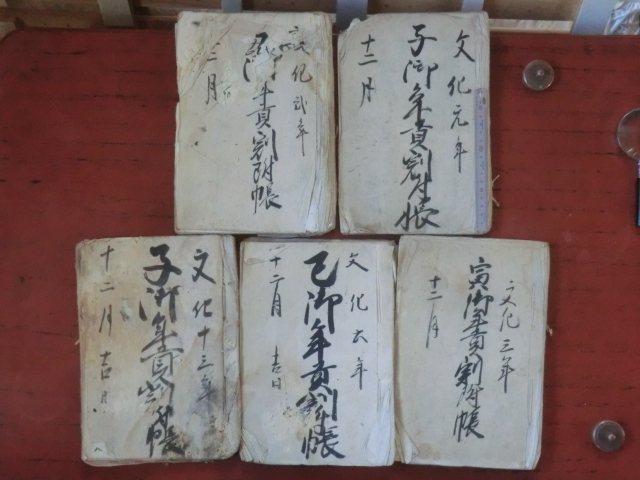 文化元年
子御年貢割付帳
十二月
文化弐年
御年貢割附帳
月
文化三年
寅御年貢割附帳
十二月
文化六年
巳御年貢割帳
十二月 吉日
文化十三年
子御年貢割附帳
十二月吉日